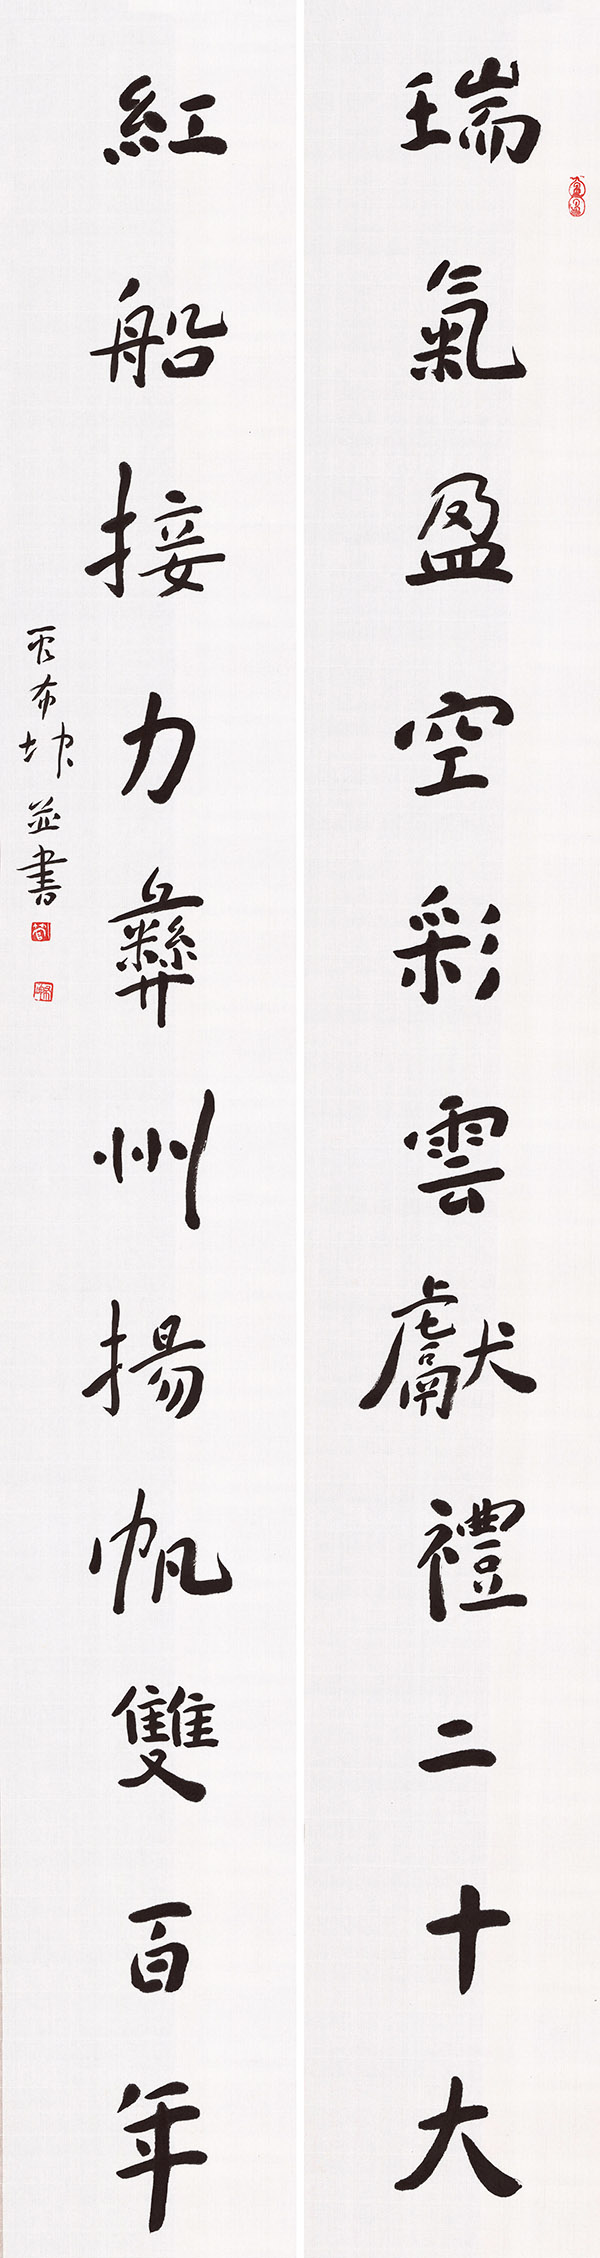 瑞氣盈空彩雲獻禮二十大
紅船接力彝州揚帆雙百年
布坤並書